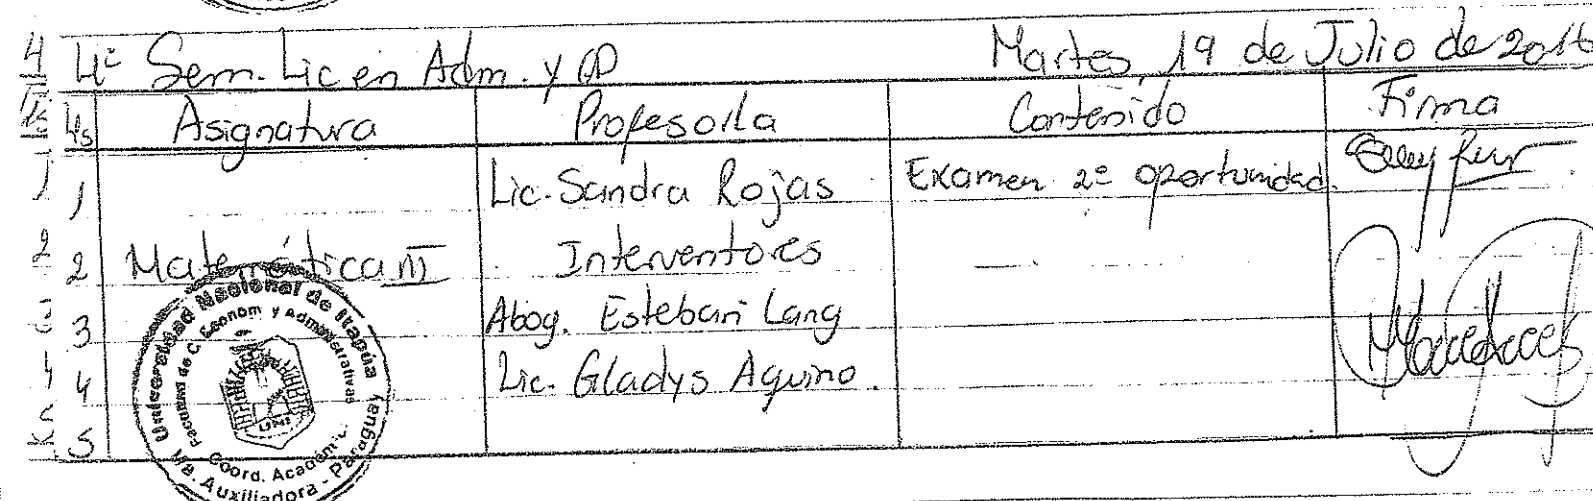 4º Sem. Lic en Adm. y
Martes, 19 de Julio de 2016
Hs Asignatura Profesor/a Contenido Firma
1 Lic. Sandra Rojas Examen 2º oportunidad.
2 Matemática III Interventores
3 Abog. Esteban Lang
4 Lic. Gladys Aquino.
5
Universidad Nacional de Itapúa
Facultad de C. Econom y Administrativas
UNI
Coord. Académic
Ma. Auxiliadora - Paraguay